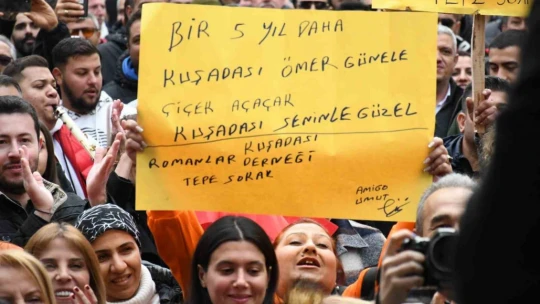 BİR 5 YIL DAHA
KUŞADASI ÖMER GÜNELE
ÇİÇEK AÇAÇAK
KUŞADASI SENİNLE GÜZEL
KUŞADASI
ROMANLAR DERNEĞİ
TEPE SOKAK
AMİGO
UMUT